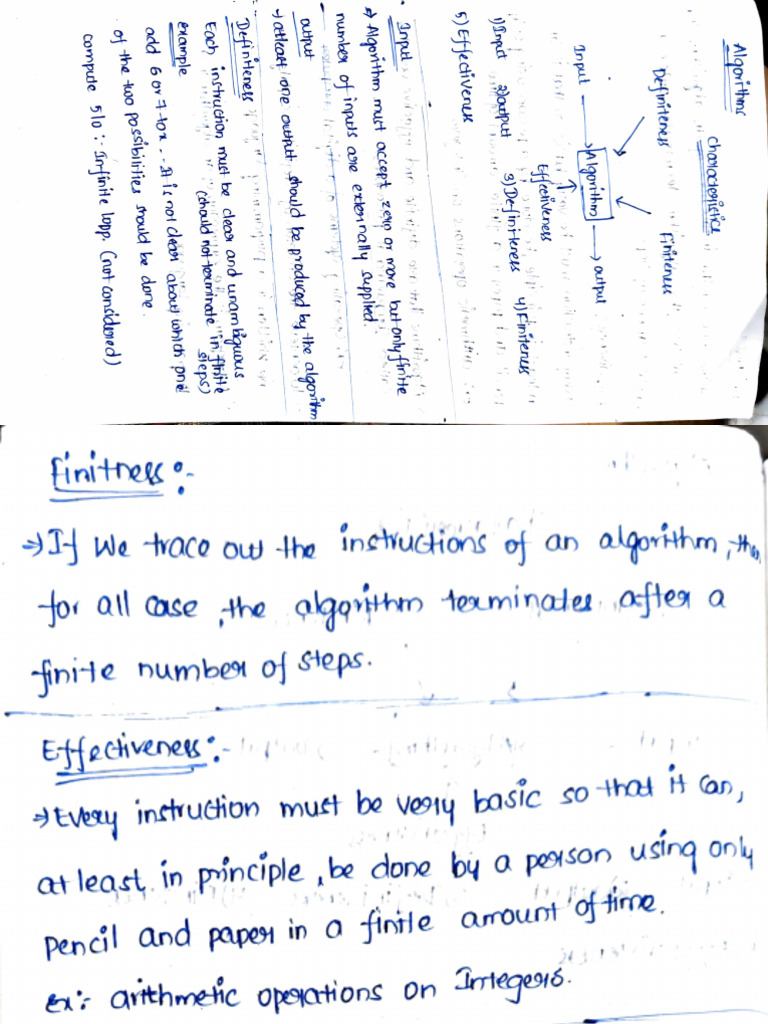 Algorithms
characteristics
Definiteness
Finiteness
Input → Algorithm → output
Effectiveness
1) Input 2) output 3) Definiteness 4) Finiteness
5) Effectiveness
Input
⇒ Algorithm must accept zero or more but only finite
number of inputs are externally supplied.
output
→ atleast one output should be produced by the algorithm
Definiteness
Each instruction must be clear and unambiguous
(should not terminate "in finite steps)
example
add 6 or 7 to x :- It is not clear about which one
of the two possibilities should be done.
compute 5/0 :- Infinite loop. (not considered)
Finitness :-
⇒ If we trace out the instructions of an algorithm, then
for all case, the algorithm terminates after a
finite number of steps.
Effectiveness :-
⇒ Every instruction must be very basic so that it can,
at least in principle, be done by a person using only
pencil and paper in a finite amount of time.
ex:- arithmetic operations on Integers.